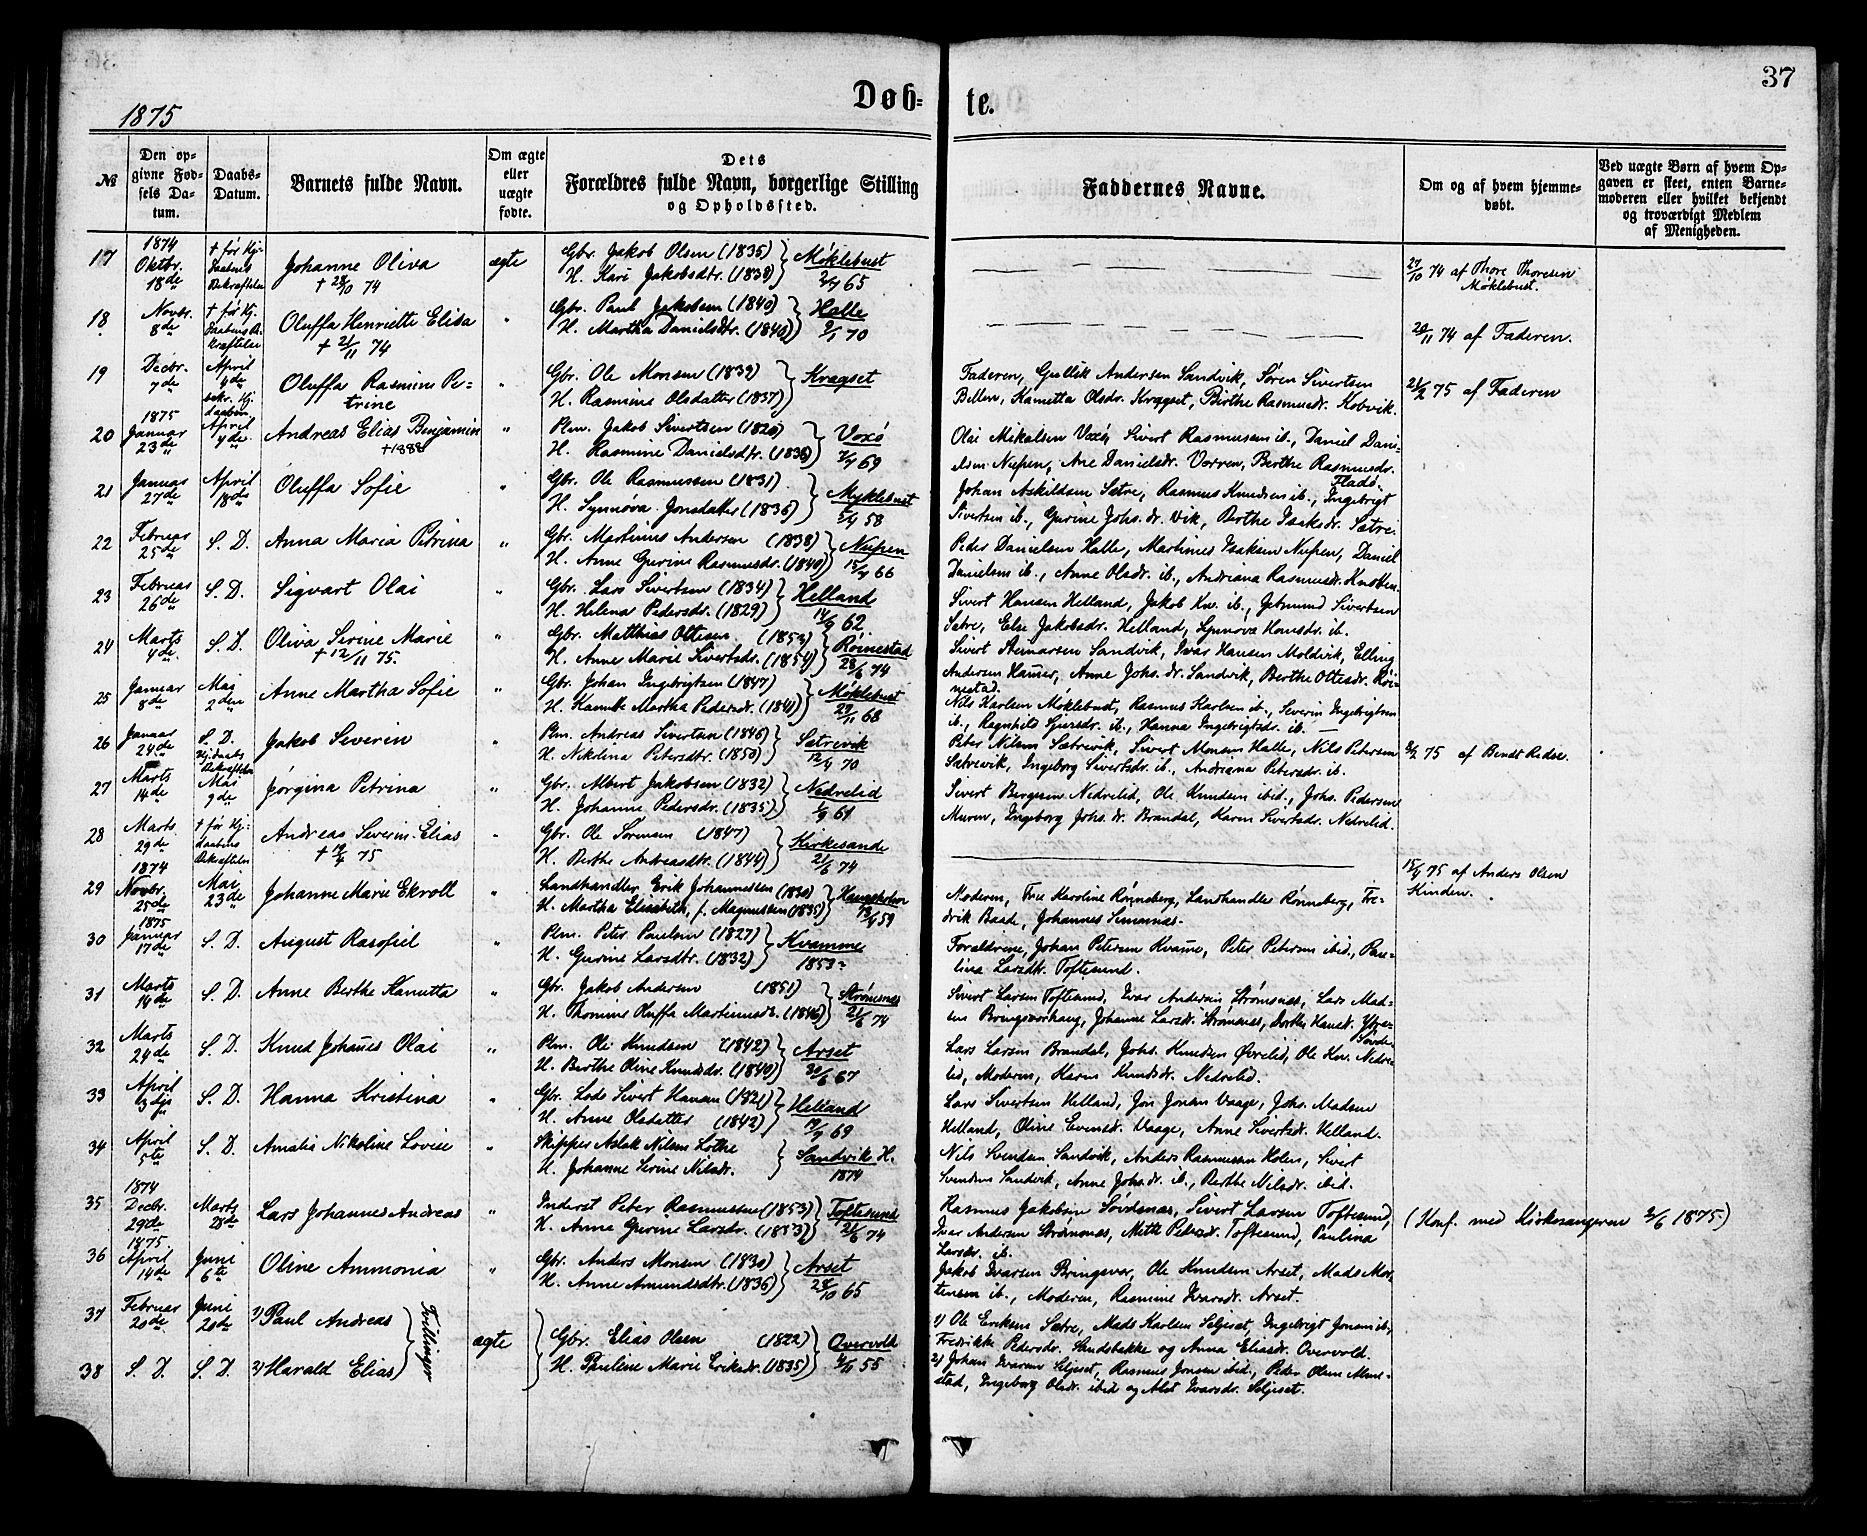 37
Døb= te.
1875
№
Den op-
givne Fød-
sels Da-
tum.
Daabs-
Datum.
Barnets fulde Navn.
Om ægte
eller
uægte
fødte.
Dets
Forældres fulde Navn, borgerlige Stilling
og Opholdssted.
Faddernes Navne.
Om og af hvem hjemme-
døbt.
Ved uægte Børn af hvem Op-
gaven er skeet, enten Barne-
moderen eller hvilket bekjendt
og troværdigt Medlem
af Menigheden.
17 1874 Oktbr. 18de † før Hj. Daabens Bekræftelse Johanne Oliva † 28/10 74 ægte
Gbr. Jakob Olsen (1835) Møklebust
H. Kari Jakobsdtr. (1838) 65
27/10 74 af Thore Thoresen
Møklebust.
18 Novbr. 8de † før Hj. Daabens Bekræftelse Oluffa Henriette Elisa † 21/11 74 "
Gbr. Paul Jakobsen (1840) Halle
H. Martha Danielsdtr. (1840) 70
20/11 74 af Faderen.
19 Decbr. 7de April 4de bekr. Hj. daaben Oluffa Rasmine Pe-
trine "
Gbr. Ole Monsen (1839) Kragset
H. Rasmine Olsdatter (1837)
Faderen, Gullik Andersen Sandvik, Søren Sivertsen
Bellen, Kanutta Olsdr. Kragset, Birthe Rasmusdr. Kobvik.
75 af Faderen
20 1875 Januar 23de April 4de Andreas Elias Benjamin †1888 "
Plm. Jakob Sivertsen (1820) Voxø
H. Rasmine Danielsdtr. (1836) 69
Olai Mikalsen Voxø, Sivert Rasmussen ib., Daniel Dani-
elsen Nupen, Ane Danielsdr. Vorren, Berthe Rasmusdr.
Fladø.
21 Januar 27de April 18de Oluffa Sofie "
Gbr. Ole Rasmussen (1831) Myklebust
H. Synnøva Jonsdatter (1836) 58
Johan Askildsen Sætre, Rasmus Knudsen ib., Ingebrigt
Sivertsen ib., Gurine Johs. dr. Vik, Berthe Isaksdr. Sætre.
22 Februar 25de S. D. Anna Maria Petrina "
Gbr. Martinus Andersen (1838) Nupen
H. Anne Gurine Rasmusdr. (1840) 66
Peder Danielsen Halle, Martines Isaksen Nupen, Daniel
Danielsen ib., Anne Olsdr. ib., Andriana Rasmusdr. Knotten.
23 Februar 26de S. D. Sigvart Olai "
Gbr. Lars Sivertsen (1834) Helland
H. Helena Pedersdr. (1829) 62
Sivert Hansen Helland, Jakob Kn. ib., Jetmund Sivertsen
Sætre, Else Jakobsdr. Helland, Synnøva Hansdr. ib.
24 Marts 4de S. D. Oliva Serine Marie † 12/11 75. "
Gbr. Matthias Ottesen (1853) Røinestad
H. Anne Marie Sivertsdr. (1854) 74
Sivert Steinarsen Sandvik, Ivar Hansen Moldvik, Elling
Andersen Hauser, Anne Johs. dr. Sandvik, Berthe Ottesdr. Røi-
nestad.
25 Januar 8de Mai 2den Anne Martha Sofie "
Gbr. Johan Ingebrigtsen (1847) Møklebust
H. Kanutte Martha Pedersdr. (1841) 68
Nils Karlsen Møklebust, Rasmus Karlsen ib., Severin Ingebrigtsen
ib., Ragnhild Sjursdr. ib., Hanna Ingebrigtsdr. ib.
26 Januar 24de S. D. Hjdaabs Bekræftelse Jakob Severin "
Plm. Andreas Sivertsen (1846) Sætrevik
H. Nikolina Petersdtr. (1850) 70
Peter Nilsen Sætrevik, Sivert Monsen Halle, Nils Petersen
Sætrevik, Ingeborg Sivertsdr. ib., Andriana Petersdr. ib.
75 af Bendt Redse.
27 Marts 14de Mai 9de Jørgina Petrina "
Gbr. Albert Jakobsen (1832) Nedrelid
H. Johanne Pedersdr. (1835) 61
Sivert Bergesen Nedrelid, Ole Knudsen ibid., Johs. Pedersen
Muren, Ingeborg Johs. dr. Brandal, Karen Sivertsdr. Nedrelid.
28 Marts 29de † før Hj. Daabens Bekræftelse Andreas Severin Elias † 19/4 75 "
Gbr. Ole Sørensen (1847) Kirkesande
H. Berthe Andreasdtr. (1844) 74
15/4 75 af Anders Olsen
Kinden.
29 1874 Novbr. 25de Mai 23de Johanne Marie Ekroll "
Landhandler Erik Johannessen (1830)
H. Martha Elisabeth, f. Magnussen (1835) 59
Moderen, Fru Karoline Rønneberg, Landhandler Rønneberg, Fre-
drik Baad, Johannes Simonnæs.
30 1875 Januar 17de S. D. August Rasofiel "
Plm. Peter Poulsen (1827) Kvamme
H. Gurine Larsdtr. (1832) 1853
Forældrene, Johan Petersen Kvame, Peter Petersen ibid., Pau-
lina Larsdtr. Toftesund.
31 Marts 14de S. D. Anne Berthe Kanutta "
Gbr. Jakob Andersen (1851) Strømsnæs
H. Thomine Oluffa Martinusdr. (1846) 21/6 74
Sivert Larsen Toftesund, Ivar Andersen Strømsnæs, Lars Mad-
sen Bringsvorhaug, Johanne Larsdr. Strømsnæs, Dorthea Hansdr. Ytre-
32 Marts 24de S. D. Knud Johannes Olai "
Plm. Ole Knudsen (1842) Årset
H. Berthe Oline Knudsdr. (1840) 67
Lars Larsen Brandal, Johs. Knudsen Øvrelid, Ole Kn. Nedre-
lid, Moderen, Karen Knudsdr. Nedrelid.
33 April S. D. Hanna Kristina "
Gbr. Lods Sivert Hansen (1821) Helland
H. Anne Olsdatter (1842) 69
Lars Sivertsen Helland, Jon Jonsen Vaage, Johs. Madsen
Helland, Oline Evensdr. Vaage, Anne Sivertsdr. Helland.
34 April 5te S. D. Amalia Nikoline Lovise "
Skipper Aslak Nilsen Lothe Sandvik H.
H. Johanne Serine Nilsdr. 1874
Nils Svendsen Sandvik, Anders Rasmussen Holen, Sivert
Svendsen Sandvik, Anne Johs. dr. ib., Berthe Nilsdr. ibid.
35 1874 Decbr. 29de Marts 28de Lars Johannes Andreas "
Inderst Peter Rasmussen (1853) Toftesund
H. Anne Gurine Larsdr. (1853) 21/6 74
Rasmus Jakobsen Søvdsnæs, Sivert Larsen Toftesund,
Ivar Andersen Strømsnæs, Mette Petersdr. Toftesund, Paulina
Larsdr. ib.
(Konf. med Kirkesangeren 2/6 1875)
36 1875 April 14de Juni 6te Oline Ammonia "
Gbr. Anders Monsen (1830) Årset
H. Anne Amundsdtr. (1836) 28/10 65
Jakob Ivarsen Bringsvor, Ole Knudsen Arset, Mads Mor-
tensen ib., Moderen, Rasmine Ivarsdr. Arset.
37 Februar 20de Juni 20de 1) Paul Andreas
38 S. D. S. D. 2) Harald Elias
Tvillinger ægte
Gbr. Elias Olsen (1822) Overvold
H. Pauline Marie Eriksdr. (1835) 55
1) Ole Eriksen Sætre, Mads Karlsen Seljeset, Ingebrigt Jonsen ib.,
Fredrikke Pedersdr. Sandsbakke og Anna Eliasdr. Overvold.
2) Johan Ivarsen Seljeset, Rasmus Jonsen ibid., Peder Olsen Mune-
stad, Ingeborg Olsdr. ibid og Alet Ivarsdr. Seljeset.